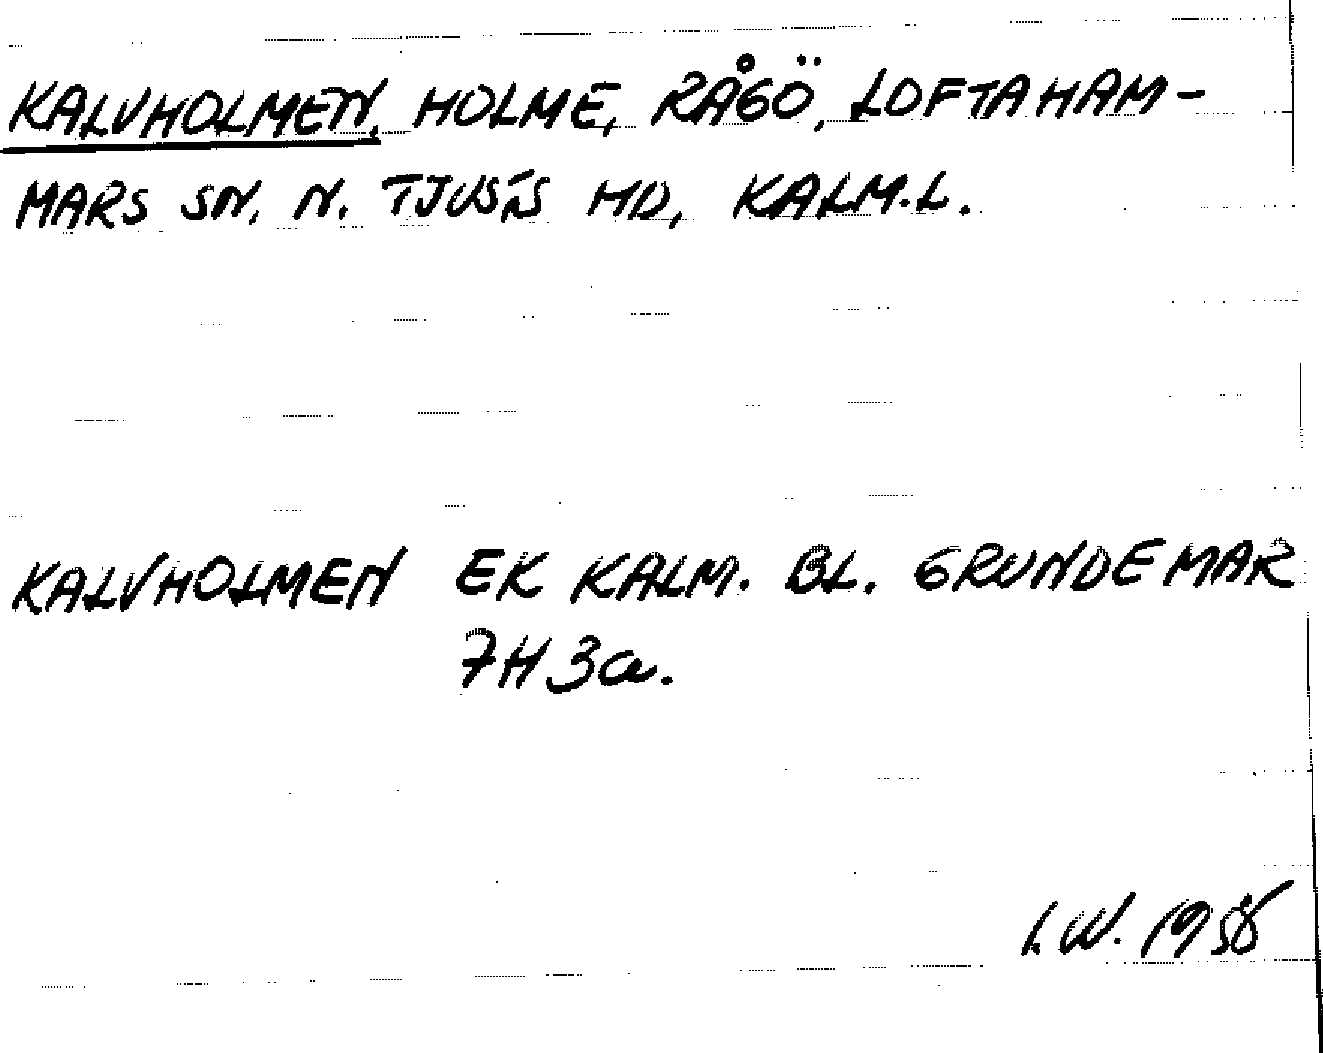 KALVHOLMEN, HOLME, RÅGÖ, LOFTAHAM-
MARS SN. N. TJUSTS HD, KALM.L.
KALVHOLMEN EK KALM. BL. GRUNDEMAR
7H 3a.
I.W.